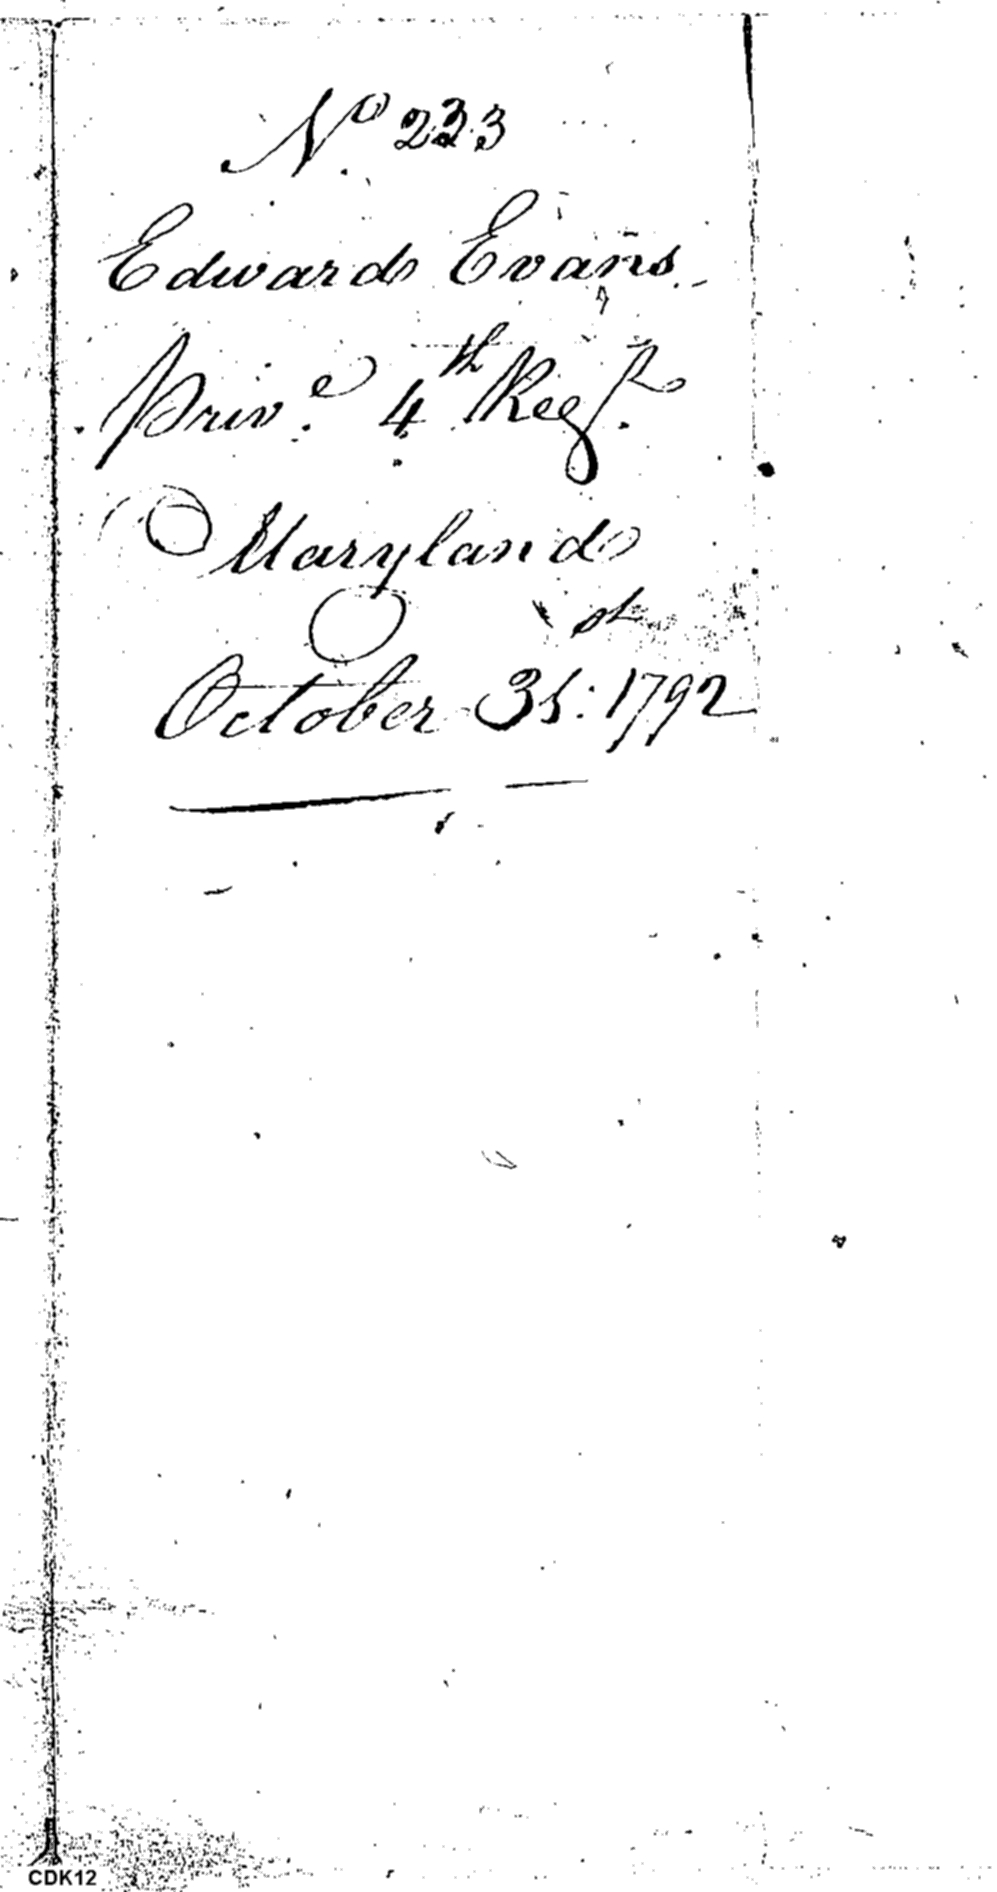 No. 223
Edward Evans.
Prive. 4th Regt.
Maryland
October 31st: 1792
CDK12